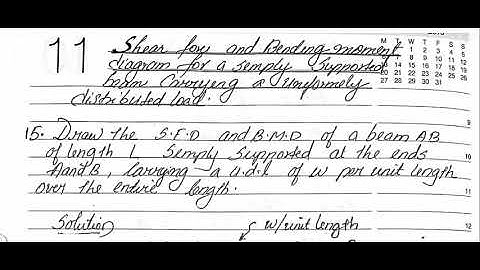 11 Shear forc and Bending moment
diagram for a semply Supported
beam Carrying a Uniformely
distributed load.
M T W T F S S
1 2 3 4 5
6 7 8 9 10 11 12
13 14 15 16 17 18 19
20 21 22 23 24 25 26
27 28 29 30 31
9
15. Draw the S.F.D and B.M.D of a beam AB
of length l Semply Supported at the ends
10
A and B, Carrying a u.d.l of w per unit length
over the entire length.
11
Solution
w/unit length
12